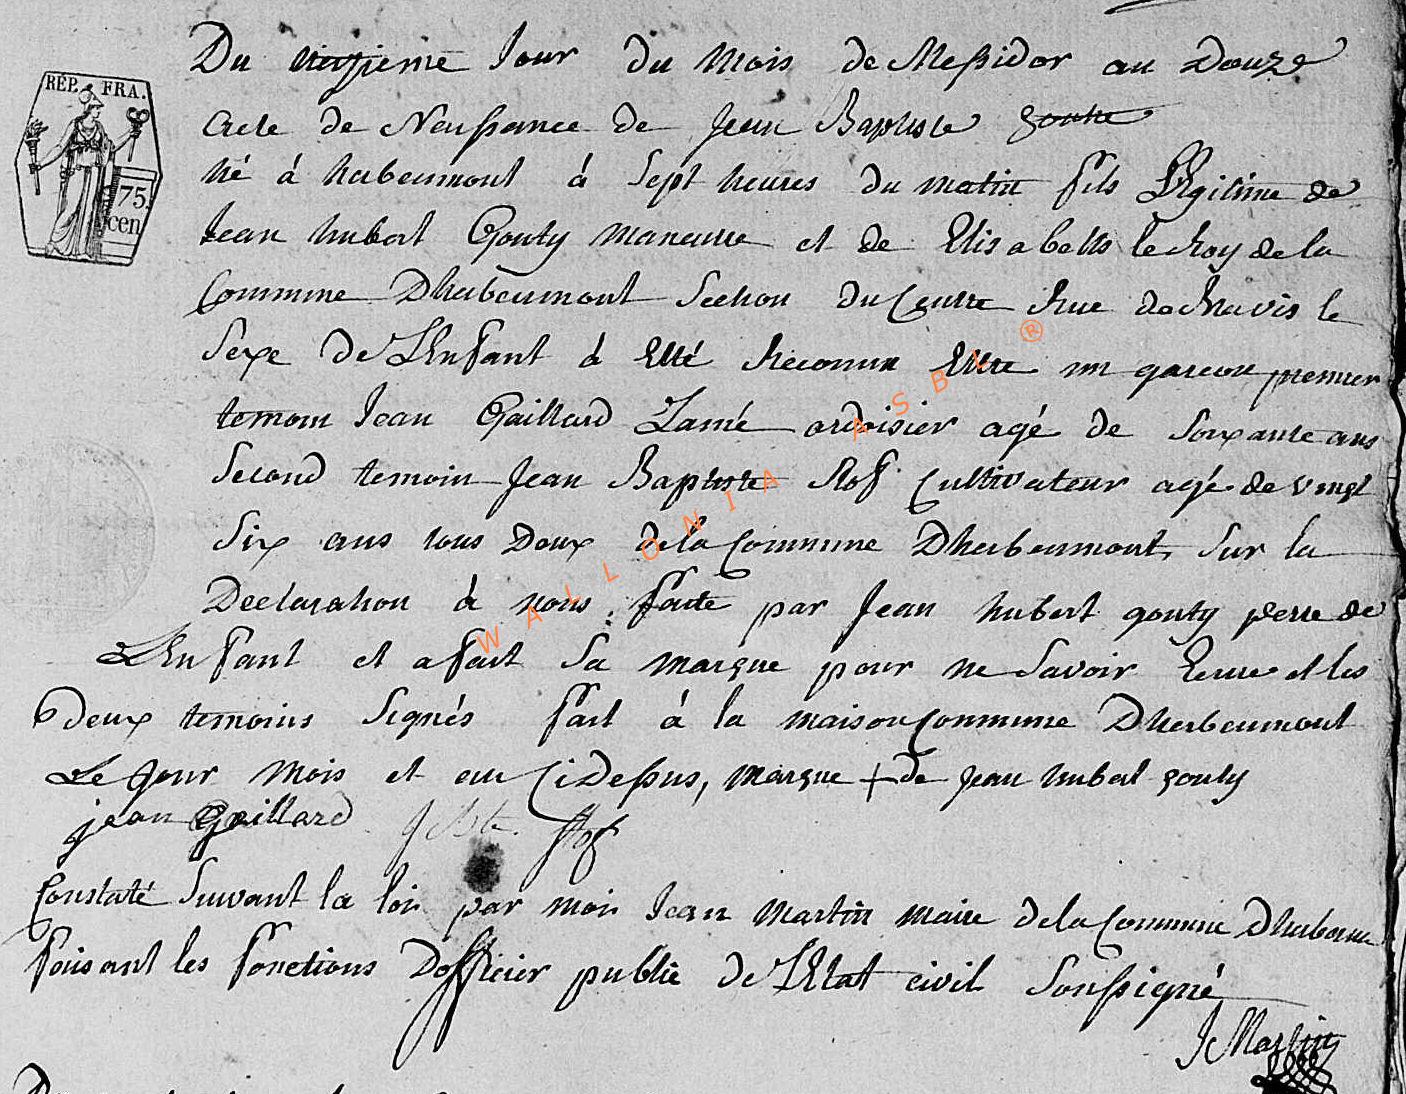 RÉP. FRA.
75.
cen
Du jour du mois de Messidor an Douze
acte de Naissance de Jean Baptiste Goutte
né à herbeumont à Sept heures du matin fils Legitime de
Jean hubert Gouty maneuvre et de Elisabette le Roy de la
Commune Dherbeumont Section du Centre Rue le
Sexe de LEnfant à Etté Reconnu Ettre un garcon premier
temoin Jean Gaillard Lainé ardoisier agé de Soixante ans
Second temoin Jean Baptiste Rof Cultivateur agé de vingt
Six ans tous Deux de la Commune Dherbeumont Sur la
Declaration à nous faite par Jean hubert gouty perre de
LEnfant et a fait Sa marque pour ne Savoir Ecrire et les
deux temoins Signés fait à la maison Commune Dherbeumont
Le Jour mois et an Ci Dessus, marque + de Jean hubert gouty
jean Gaillard J Bte Rof
Constaté Suivant la loi par moi Jean Martin maire de la Commune Dherbeum
faisant les fonctions Dofficier public de LEtat civil Soussigné
J Martin
WALLONIA ASBL ®